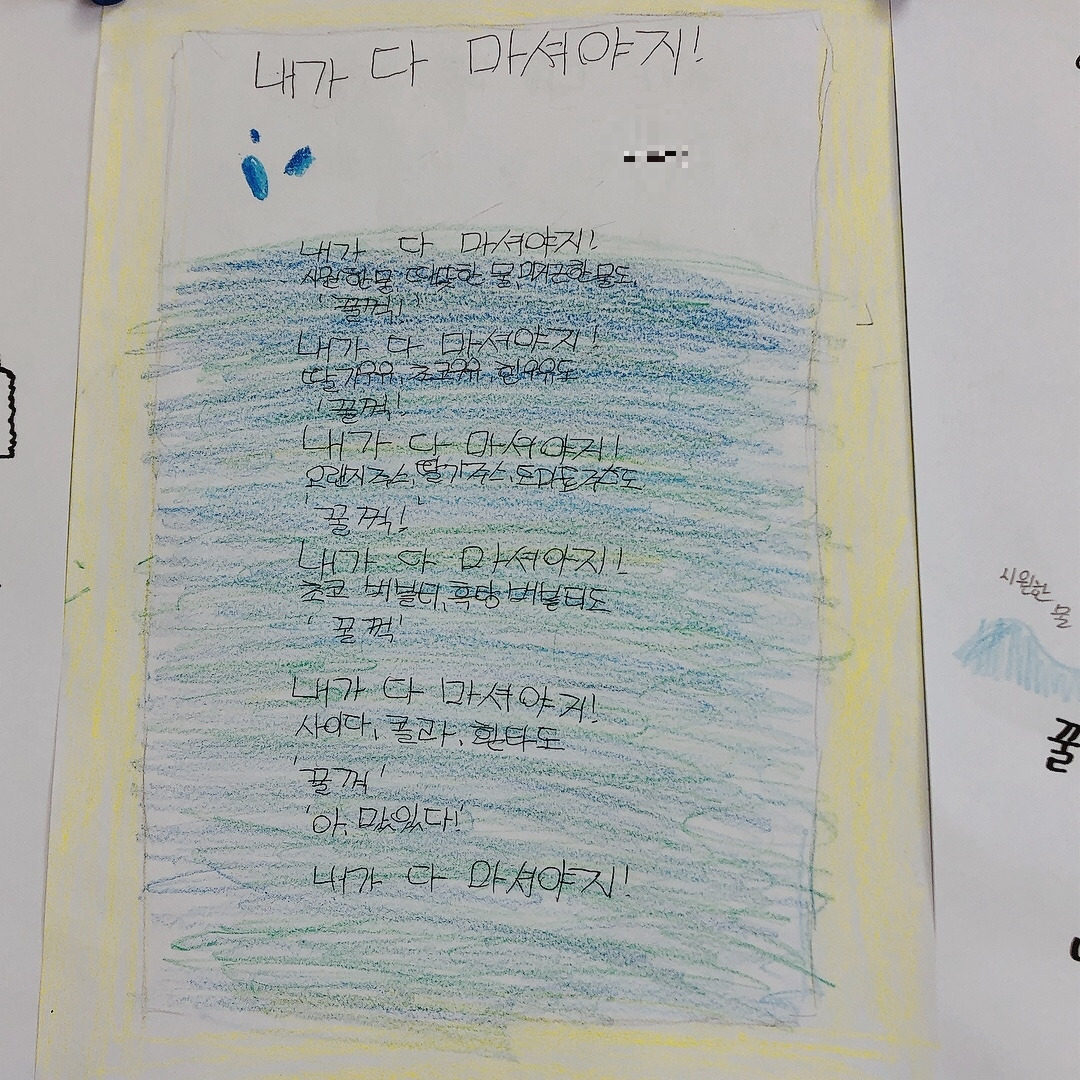 내가 다 마셔야지!
내가 다 마셔야지!
시원한 물, 따뜻한 물, 미지근한 물도,
'꿀꺽!'
내가 다 마셔야지!
딸기우유, 초코우유, 흰우유도
'꿀꺽!'
내가 다 마셔야지!
오렌지주스, 딸기주스, 토마토주스도
'꿀꺽!'
내가 다 마셔야지!
초코 버블티, 흑당 버블티도
'꿀꺽'
내가 다 마셔야지!
사이다, 콜라, 환타도
'꿀꺽'
'아, 맛있다!'
내가 다 마셔야지!
시원한
물
꿀